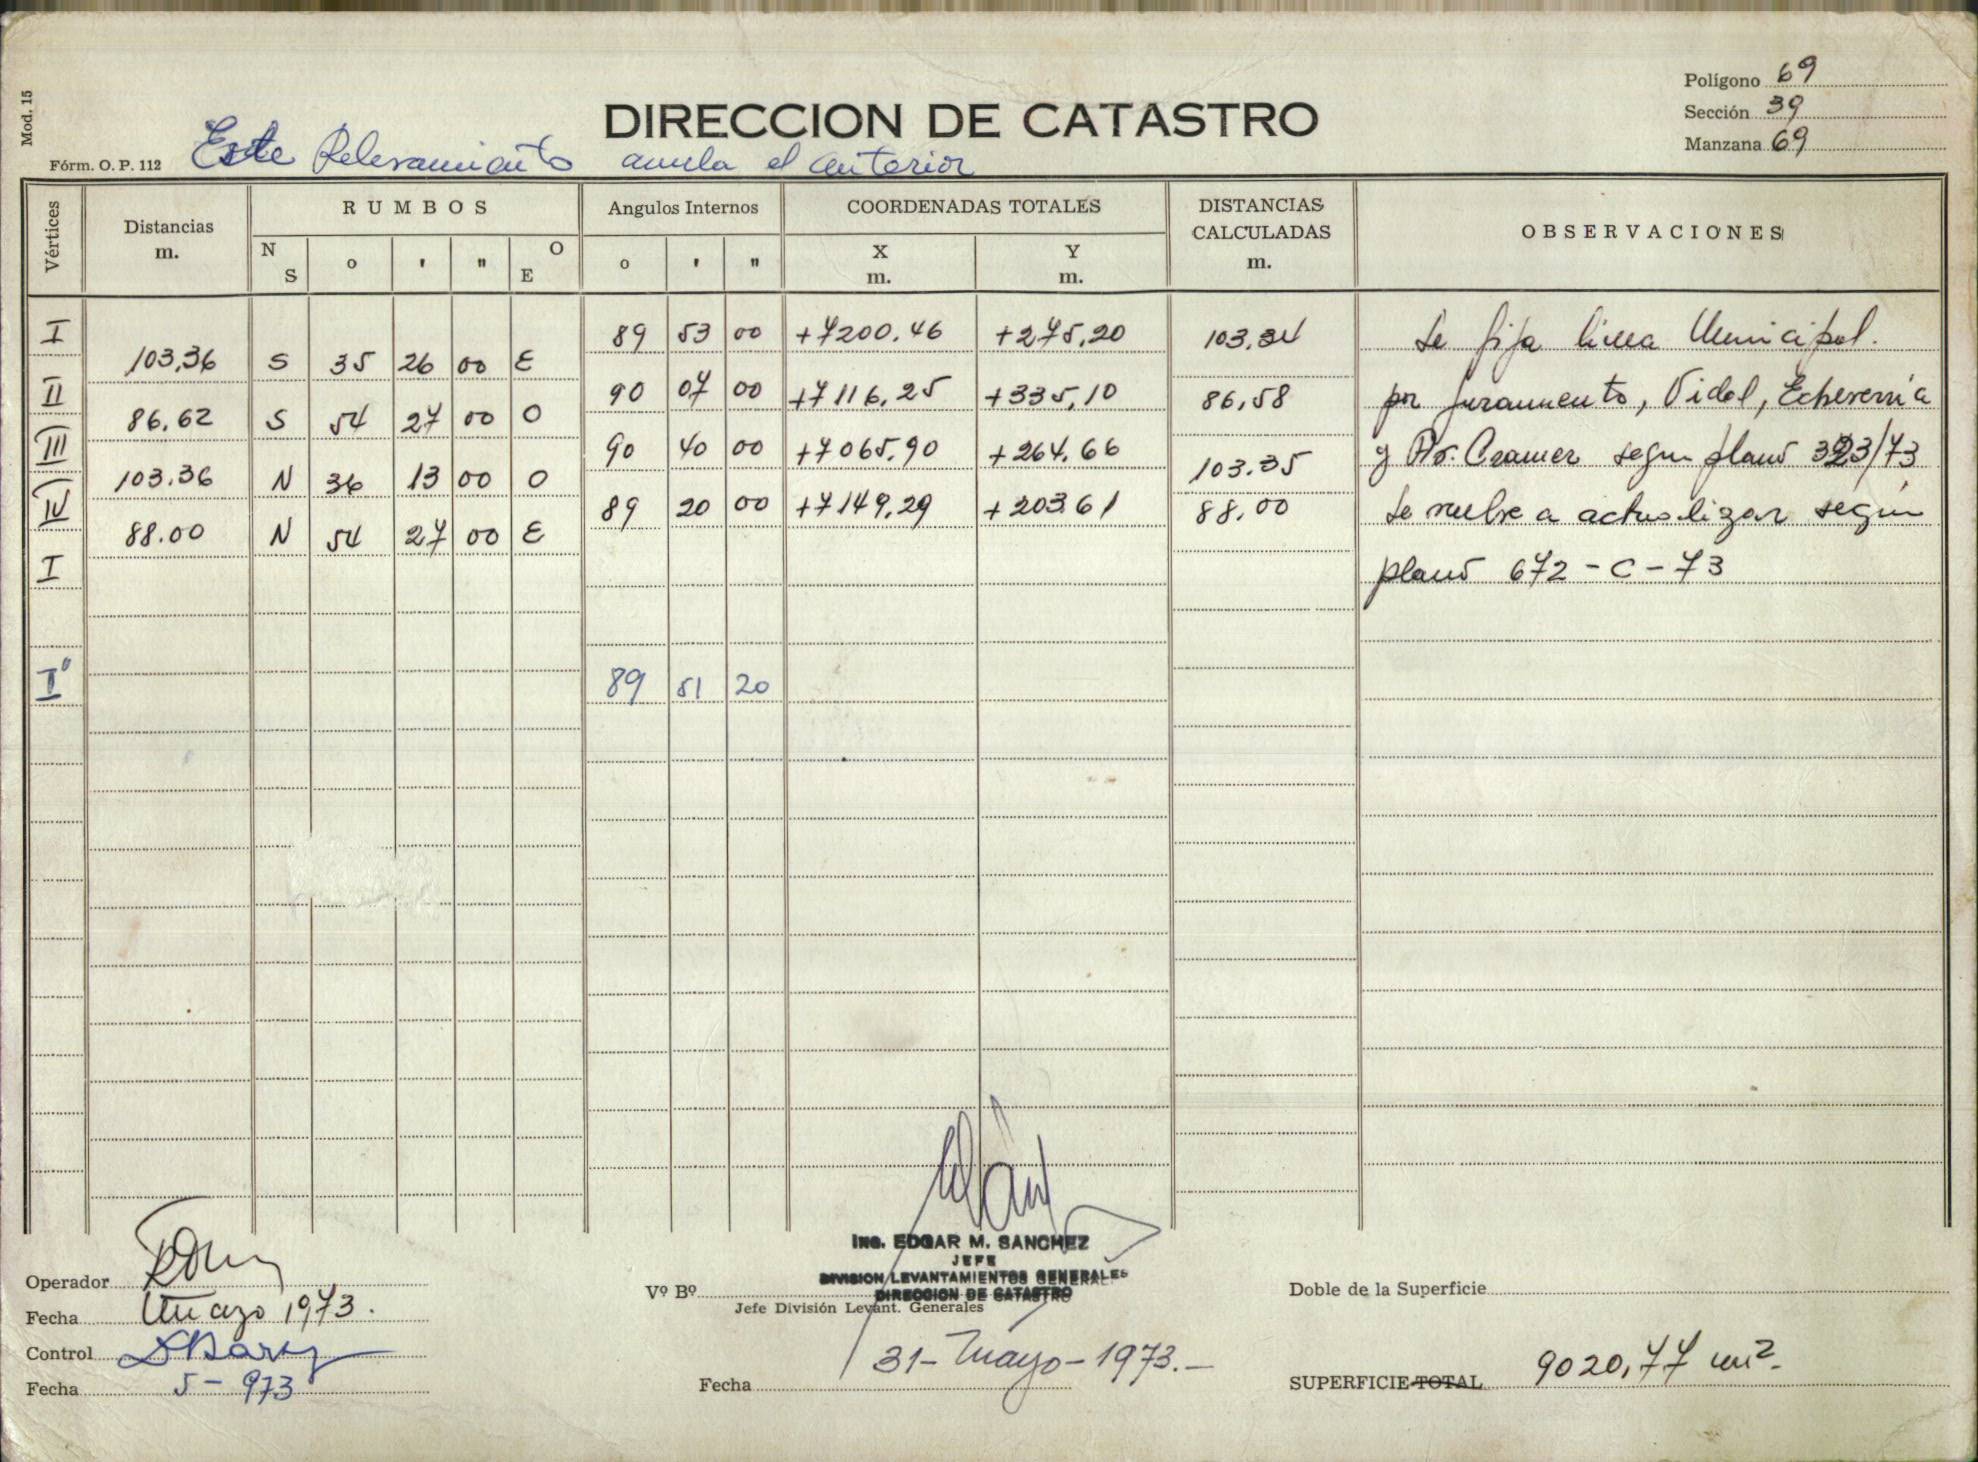 Mod. 15
Polígono 69
DIRECCION DE CATASTRO
Sección 39
Manzana 69
Fórm. O. P. 112 Este Relevamiento anula el anterior
Vértices Distancias m. RUMBOS N S o ' " O E Angulos Internos o ' " COORDENADAS TOTALES X m. Y m. DISTANCIAS CALCULADAS m. OBSERVACIONES
I 89 53 00 +7200.46 +275,20 103.34 Se fija linea Municipal.
103,36 S 35 26 00 E
II 90 07 00 +7116,25 +335,10 86,58 por Juramento, Vidal, Echeverría
86.62 S 54 27 00 O
III 90 40 00 +7065.90 +264.66 103.35 y Av. Cramer segun plano 323/73
103.36 N 36 13 00 O
IV 89 20 00 +7149,29 +203.61 88,00 Se vuelve a actualizar según
88.00 N 54 27 00 E
I plano 672-C-73
I' 89 51 20
Ing. EDGAR M. SANCHEZ
JEFE
DIVISION LEVANTAMIENTOS GENERALES
DIRECCION DE CATASTRO
Operador
Vº Bº
Jefe División Levant. Generales
Doble de la Superficie
Fecha Mayo 1973.
Control
Fecha 5-973
Fecha 31-Mayo-1973.-
SUPERFICIE TOTAL 9020,77 m².